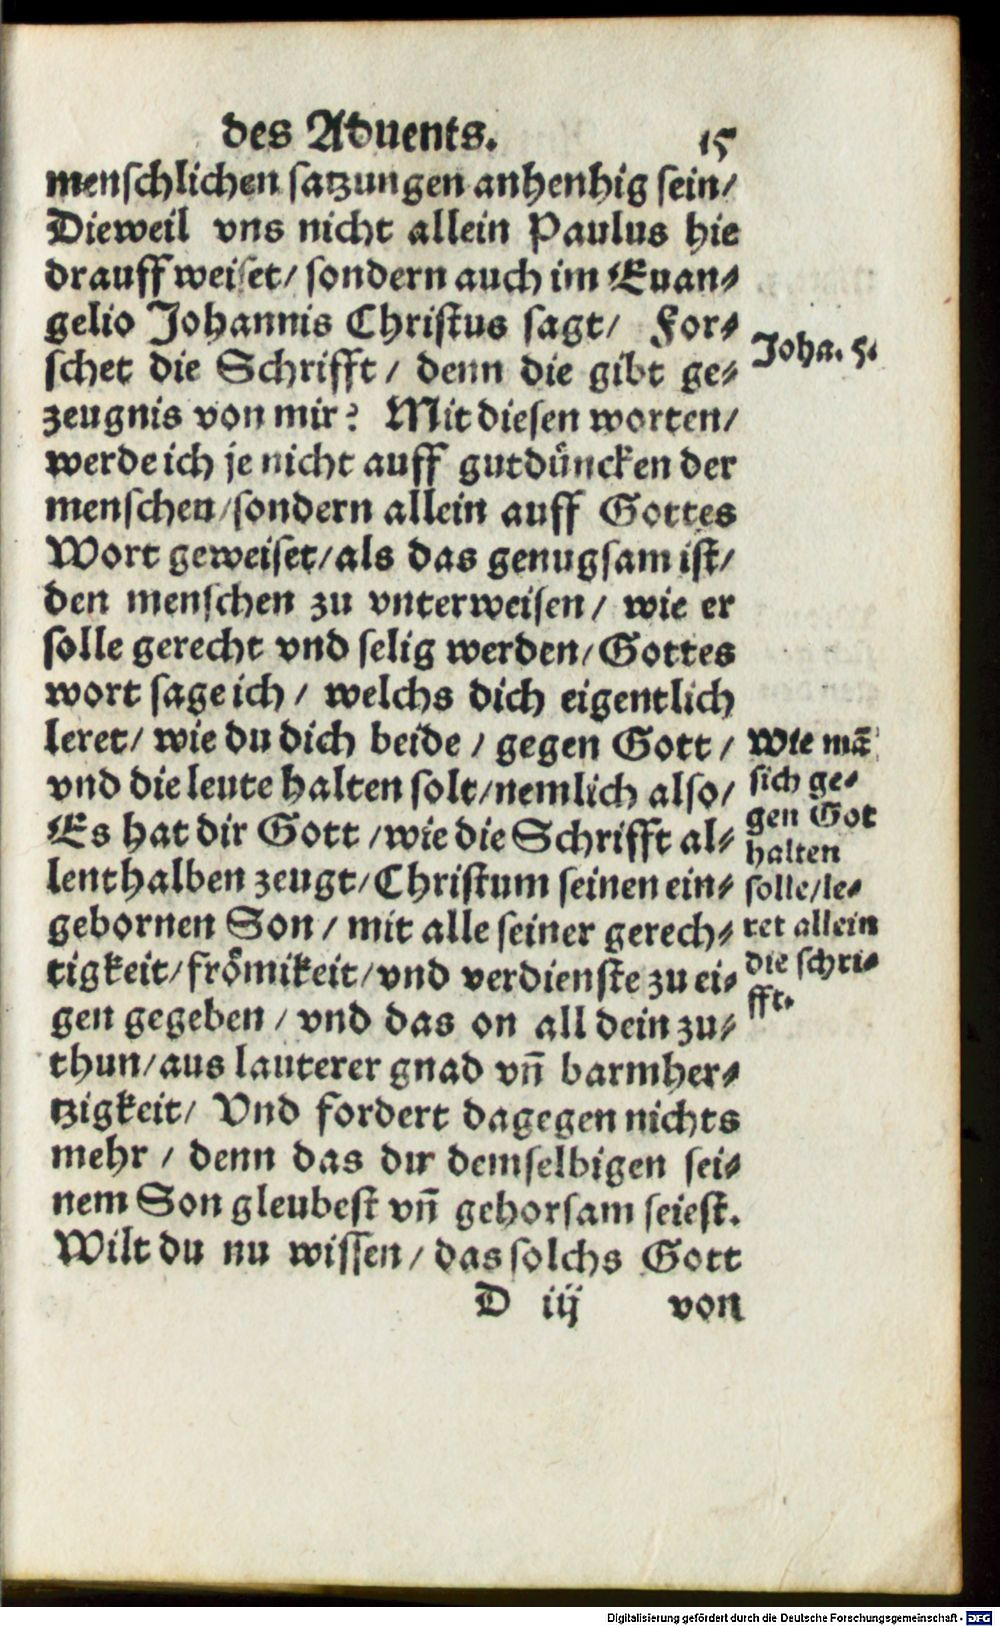 des Aduents. 15
menschlichen satzungen anhenhig sein/
Dieweil vns nicht allein Paulus hie
drauff weiset/ sondern auch im Euan⸗
gelio Johannis Christus sagt/ For⸗
schet die Schrifft/ denn die gibt ge⸗
zeugnis von mir? Mit diesen worten/
werde ich je nicht auff gutdüncken der
menschen/sondern allein auff Gottes
Wort geweiset/als das genugsam ist/
den menschen zu vnterweisen/ wie er
solle gerecht vnd selig werden/Gottes
wort sage ich/ welchs dich eigentlich
leret/ wie du dich beide/ gegen Gott/
vnd die leute halten solt/nemlich also/
Es hat dir Gott/wie die Schrifft al⸗
lenthalben zeugt/Christum seinen ein⸗
gebornen Son/ mit alle seiner gerech⸗
tigkeit/froͤmikeit/vnd verdienste zu ei⸗
gen gegeben/ vnd das on all dein zu⸗
thun/aus lauterer gnad vñ barmher⸗
tzigkeit/ Vnd fordert dagegen nichts
mehr/ denn das dir demselbigen sei⸗
nem Son gleubest vñ gehorsam seiest.
Wilt du nu wissen/ das solchs Gott
D iij von
Joha. 5.
Wie mã
sich ge⸗
gen Got
halten
solle/le⸗
ret allein
die schri⸗
fft.
Digitalisierung gefördert durch die Deutsche Forschungsgemeinschaft - DFG